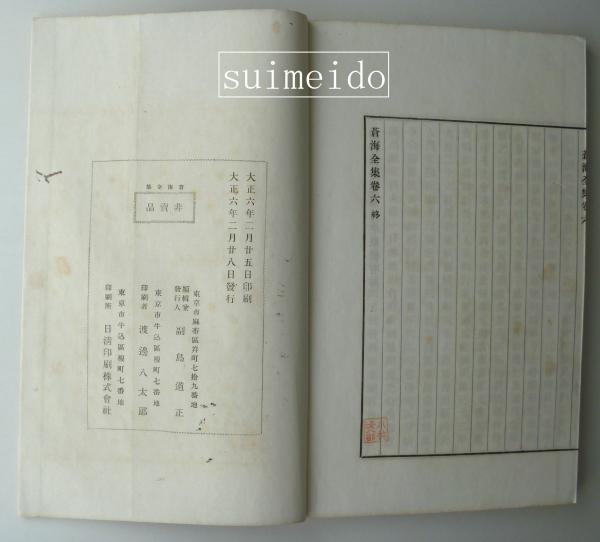 suimeido
蒼海全集卷六
蒼海全集卷六 終
大正六年二月廿五日印刷
大正六年二月廿八日發行
東京市麻布區笄町七拾九番地
編輯兼發行人 副島道正
東京市牛込區榎町七番地
印刷者 渡邊八太郎
東京市牛込區榎町七番地
印刷所 日清印刷株式會社
蒼海全集
非賣品